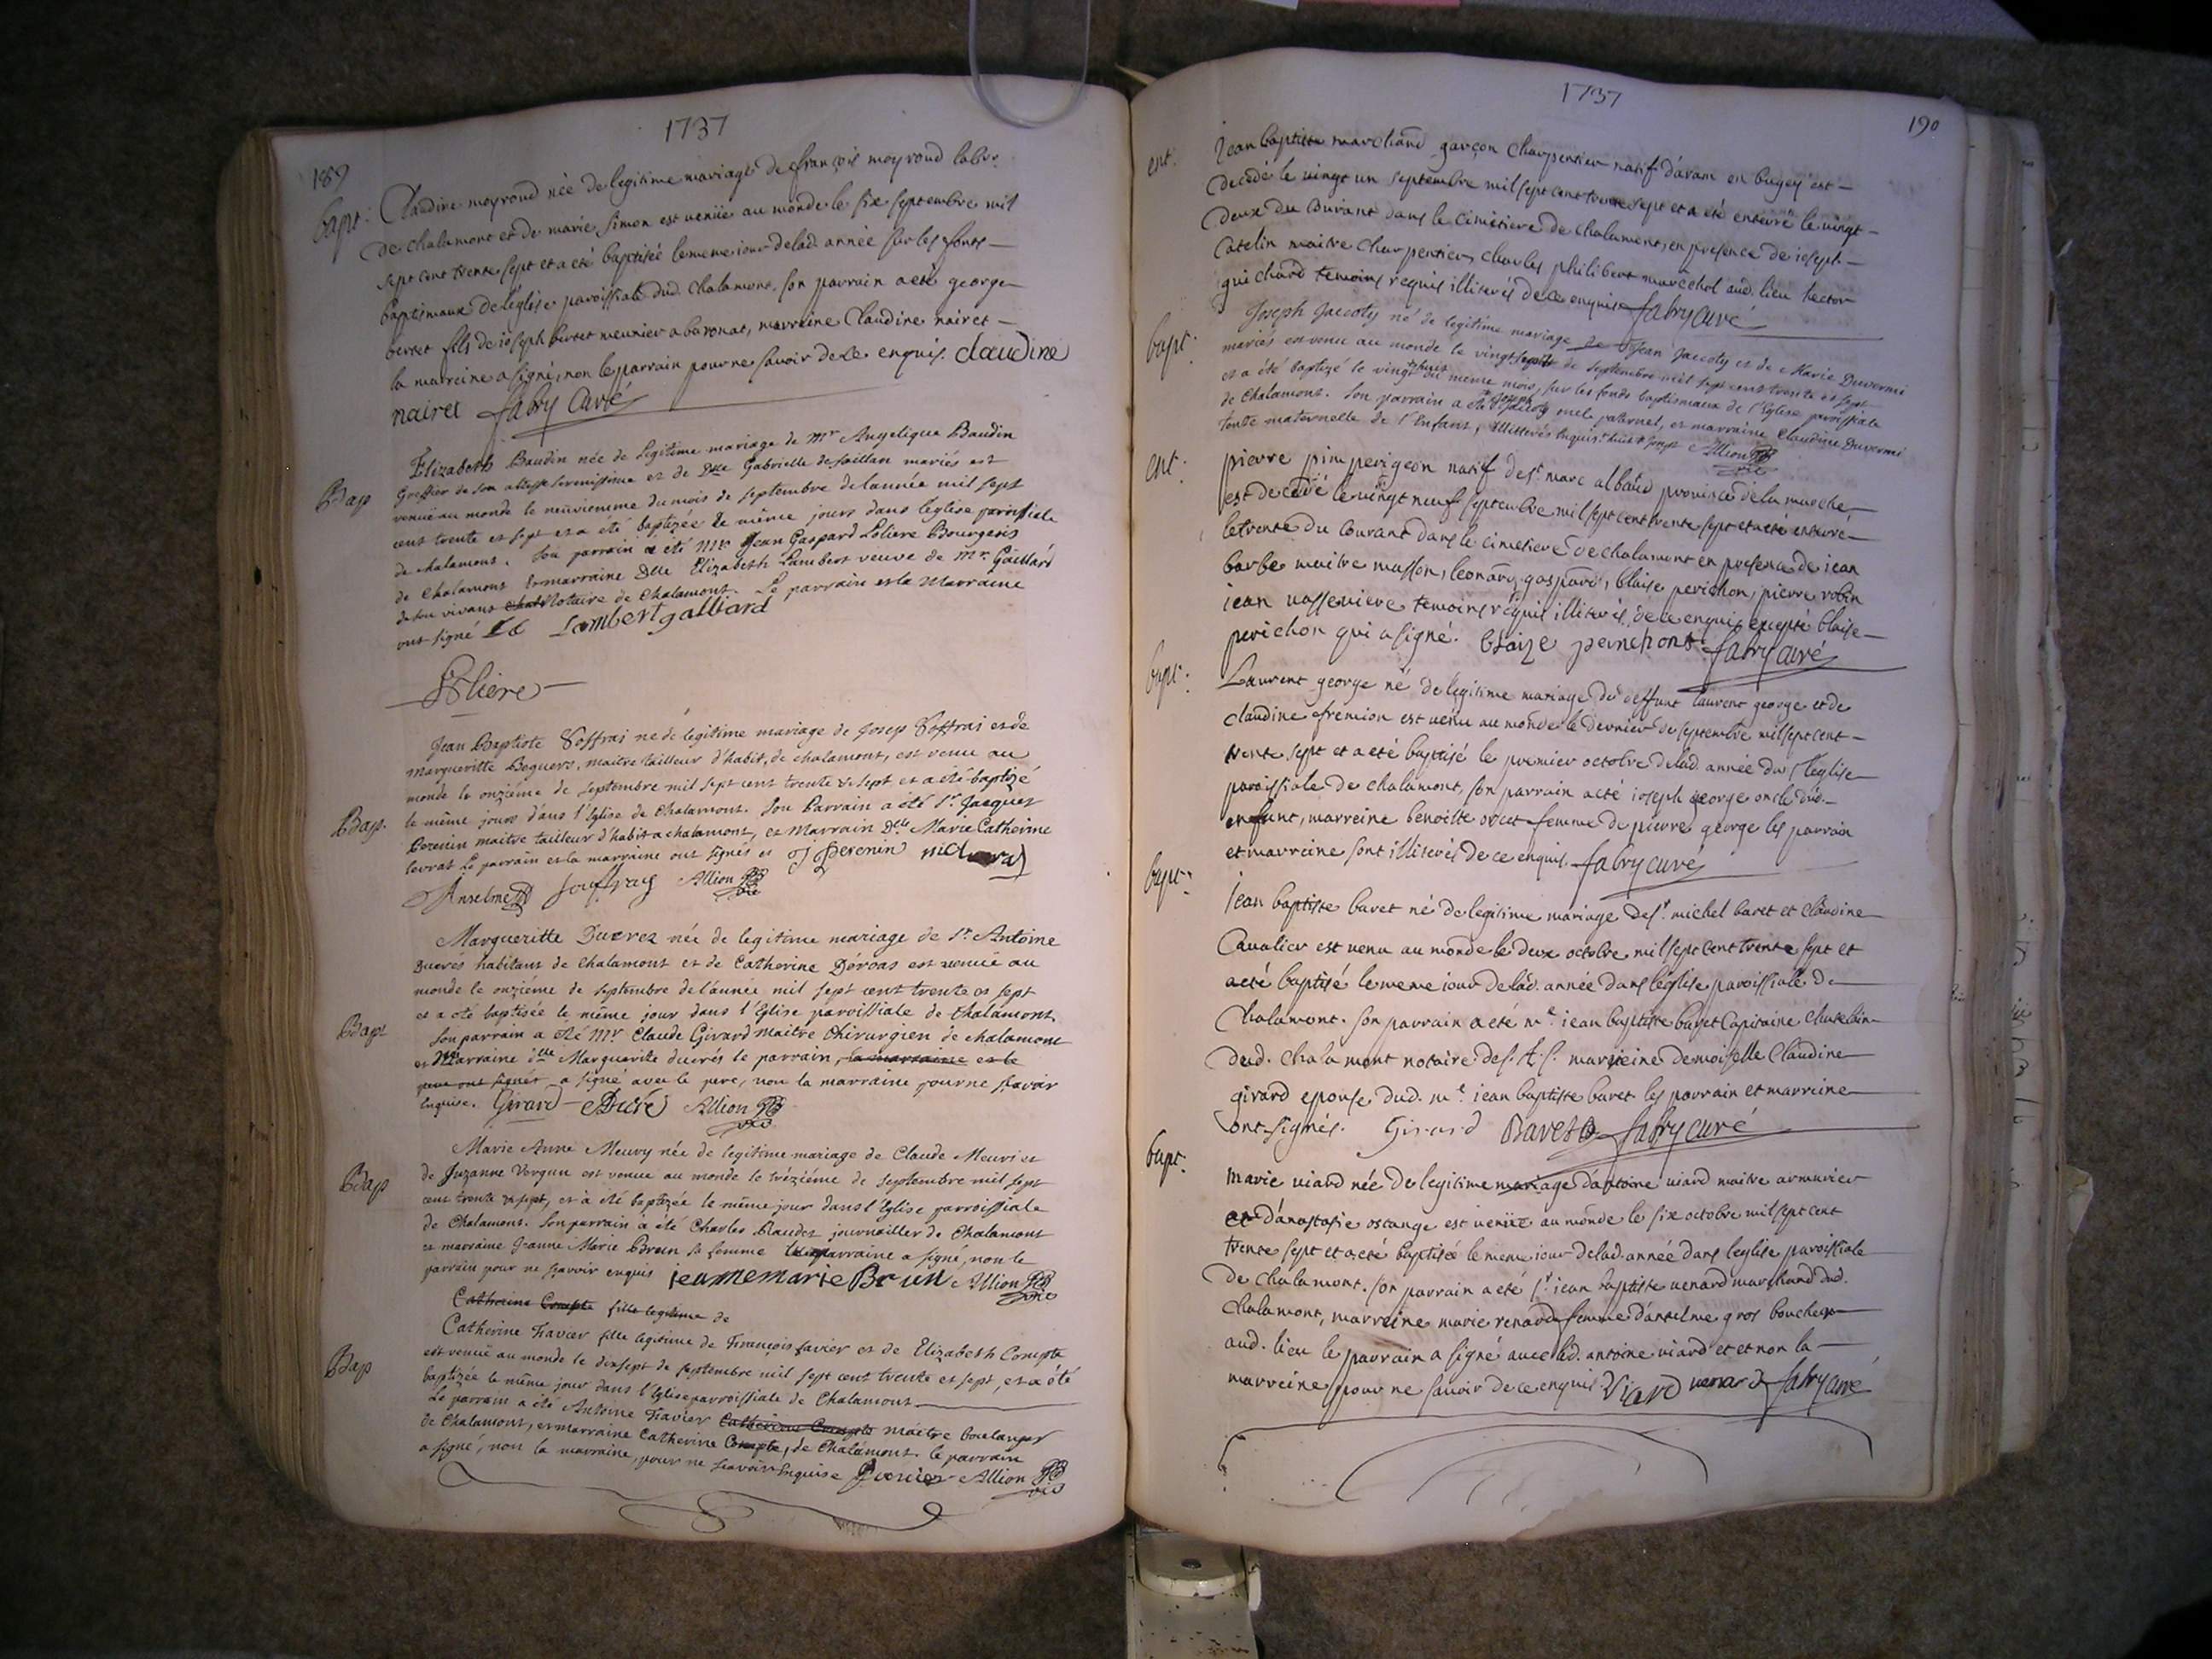 1737
189
bapt: Claudine moyroud née de legitime mariage de françois moyroud labr.
de chalamont et de marie simon est venüe au monde le six septembre mil
sept cent trente sept et a eté baptisée le meme iour delad. année sur les fonts
baptismaux de leglise paroissiale dud. Chalamont, son parrain a eté george
berret fils de ioseph berret meunier a baronat, marreine Claudine nairet
la marreine a signé, non le parrain pour ne savoir de ce enquis. claudine
nairet fabry Curé
Elizabeth Baudin née de Legitime mariage de Mr Angelique Baudin
Greffier de son altesse serenissime et de Dlle Gabrielle de saillan mariés est
Bap venuë au monde le neuvieme du mois de septembre de lannée mil sept
cent trente et sept et a été baptizée le même jours dans leglise paroissiale
de chalamont. Son parrain a été Mr Jean Gaspard Loliere Bourgeois
de Chalamont et marraine Dlle Elizabeth Lambert veuve de Mr Gaillard
de son vivant Notaire de Chalamont. Le parrain et la Marraine
ont signé Lambert galliard
Loliere
Jean Baptiste Soffrai né de légitime mariage de Josep Soffrai et de
Margueritte Beguers, maitre tailleur d'habit, de chalamont, est venu au
monde le onziéme de septembre mil sept cent trente & sept et a été baptizé
Bap. le même jours dans l'Eglise de Chalamont. Son Parrain a été Sr Jacques
Perenin maitre tailleur d'habit a chalamont, et Marrain Dlle Marie Catherine
levrat Le parrain et la marraine ont signés et J Perenin
Anselme Souffray Allion vic
Margueritte Ducrez née de legitime mariage de Sr Antoine
Ducrés habitant de Chalamont et de Catherine Dervas est venuë au
monde le onziéme de septembre de l'année mil sept cent trente et sept
et a été baptisée le même jour dans l'Eglise paroissiale de Chalamont.
Bapt Son parrain a été Mr Claude Girard maitre chirurgien de chalamont
et Marraine dlle Marguerite ducrés le parrain, la marraine et le
pere ont signés a signé avec le pere, non la marraine pour ne sçavoir
enquise. Girard Ducré Allion vic
Marie Anne Meuvry née de legitime mariage de Claude Meuvri et
Bap de Suzanne Vergun est venue au monde le trézième de septembre mil sept
cent trente & sept, et a été baptizée le même jour dans l'Eglise parroissiale
de Chalamont. Son parrain à été Charles Blaudet journailler de Chalamont
et marraine Jeanne Marie Breun sa femme la marraine a signé, non le
parrain pour ne sçavoir enquis jeanne marie Brun Allion vic
Catherine Compte fille legitime de
Catherine Favier fille legitime de François favier et de Elizabeth Compte
Bap est venuë au monde le dixsept de septembre mil sept cent trente et sept, et a été
baptizée le même jour dans l'Eglise parroissiale de Chalamont
Le parrain a été Antoine Favier Catherine Compte maitre boulanger
de Chalamont, et marraine Catherine Compte, de Chalamont. le parrain
a signé, non la marraine, pour ne sçavoir enquise Favier Allion vic
1737
190
ent. Jean baptiste marchand garçon charpentier natif d'aram en bugey est
decedé le vingt un septembre mil sept cent trente sept et a eté enterré le vingt
deux du Courant dans le cimetiere de chalamont, en presence de ioseph
Catelin maitre charpentier, charles philibert marechal aud. lieu hector
guichard temoins requis illiterés de ce enquis fabry Curé
bapt: Joseph Jaccoty né de legitime mariage de Jean Jaccoty et de Marie Duvermi
mariés est venu au monde le vingt sept de septembre mil sept cent trente et sept
et a été baptizé le vingt huit du même mois, sur les fonds baptismaux de l'Eglise paroissiale
de Chalamont. Son parrain a été Joseph Jaccoty oncle paternel, et marraine Claudine Duvermi
tante maternelle de l'Enfant, illitterés enquis Allion vic
ent: pierre pimperigeon natif de st marc albaud province de la marche
est decedé le vingt neuf septembre mil sept cent trente sept et a eté enterré
le trente du Courant dans le cimetiere de chalamont en presence de iean
barbe maitre masson, leonard gaspard, blaise perichon, pierre robin
iean vasseviere temoins requis illiterés de ce enquis excepté blaise
perichon qui a signé. blaize perichont fabry curé
bapt: Laurent george né de legitime mariage de deffunt laurent george et de
claudine fremion est venu au monde le dernier de septembre mil sept cent
trente sept et a eté baptisé le premier octobre delad. année dans l'eglise
paroissiale de chalamont, son parrain a eté ioseph george oncle dud.
enfant, marreine benoitte orcet femme de pierre george les parrain
et marreine sont illiterés de ce enquis. fabry curé
bapt: Jean baptiste baret né de legitime mariage de sr michel baret et claudine
Cavalier est venu au monde le deux octobre mil sept cent trente sept et
a eté baptisé le meme iour delad. année dans l'eglise paroissiale de
Chalamont. son parrain a eté me iean baptiste baret Capitaine Chatelain
dud. Chalamont notaire de s. A. s. marreine demoiselle Claudine
girard epouse dud. me iean baptiste baret les parrain et marreine
ont signés. Girard Baret fabry curé
bapt. marie viard née de legitime mariage d'antoine viard maitre armurier
et d'anastasie ostange est venüe au monde le six octobre mil sept cent
trente sept et a eté baptisée le meme iour delad. année dans l'eglise paroissiale
de chalamont. son parrain a eté sr iean baptiste venard marchand dud.
Chalamont, marreine marie renard femme d'anselme gros boucher
aud. lieu le parrain a signé avec led. antoine viard et et non la
marreine pour ne savoir de ce enquis Viard venard fabry curé